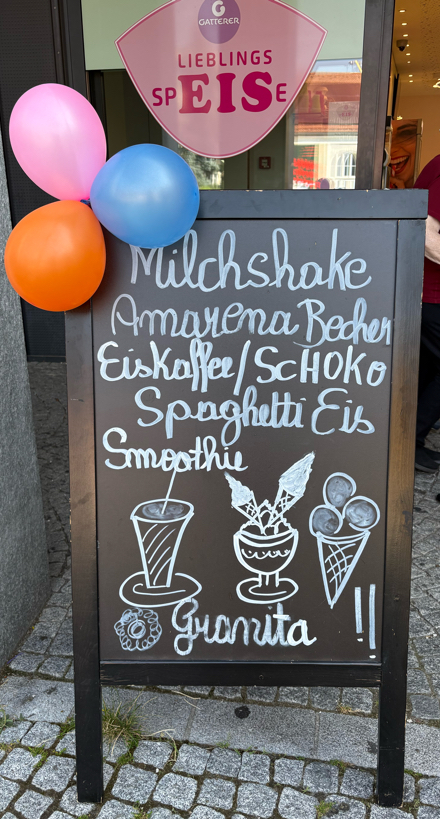 G
GATTERER
LIEBLINGS
SPEISE
Milchshake
Amarena Becher
Eiskaffee/SCHOKO
Spaghetti Eis
Smoothie
Granita !!